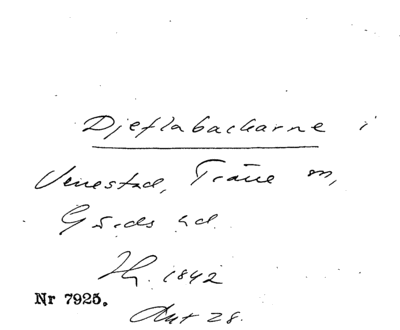 Djeflabackarne i
Venestad, Träne sn,
Gärds hd.
Hg. 1842
Nr 7925.
Ant 28.